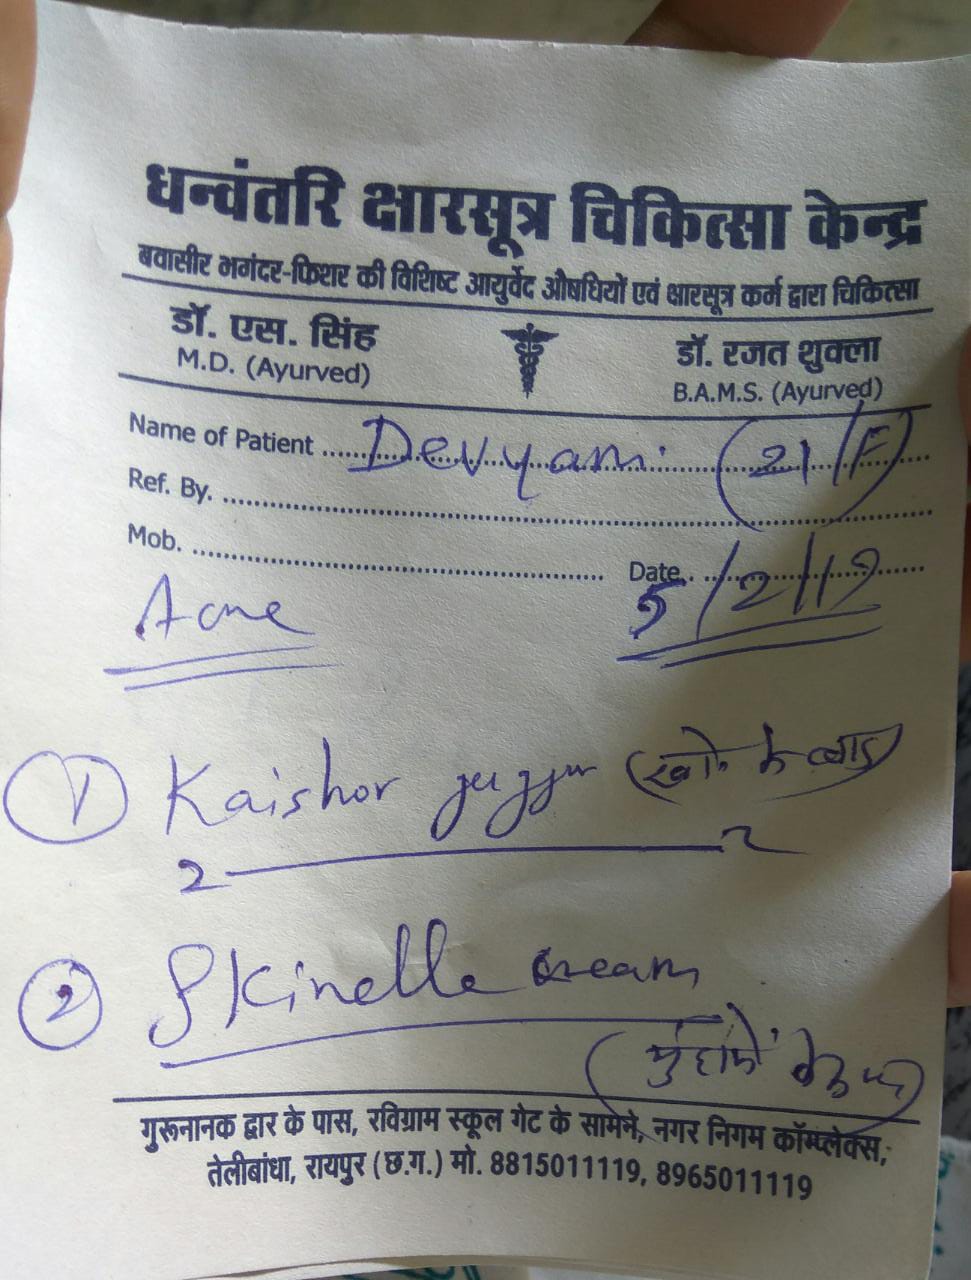 धन्वंतरि क्षारसूत्र चिकित्सा केन्द्र
बवासीर भगंदर-फिशर की विशिष्ट आयुर्वेद औषधियों एवं क्षारसूत्र कर्म द्वारा चिकित्सा
डॉ. एस. सिंह डॉ. रजत शुक्ला
M.D. (Ayurved) B.A.M.S. (Ayurved)
Name of Patient Devyani (21/F)
Ref. By.
Mob. Date. 5/2/19
Acne
① Kaishor (खाने के बाद)
2 — 2
② Skinelle cream
(मुंहासे
गुरूनानक द्वार के पास, रविग्राम स्कूल गेट के सामने, नगर निगम कॉम्प्लेक्स,
तेलीबांधा, रायपुर (छ.ग.) मो. 8815011119, 8965011119